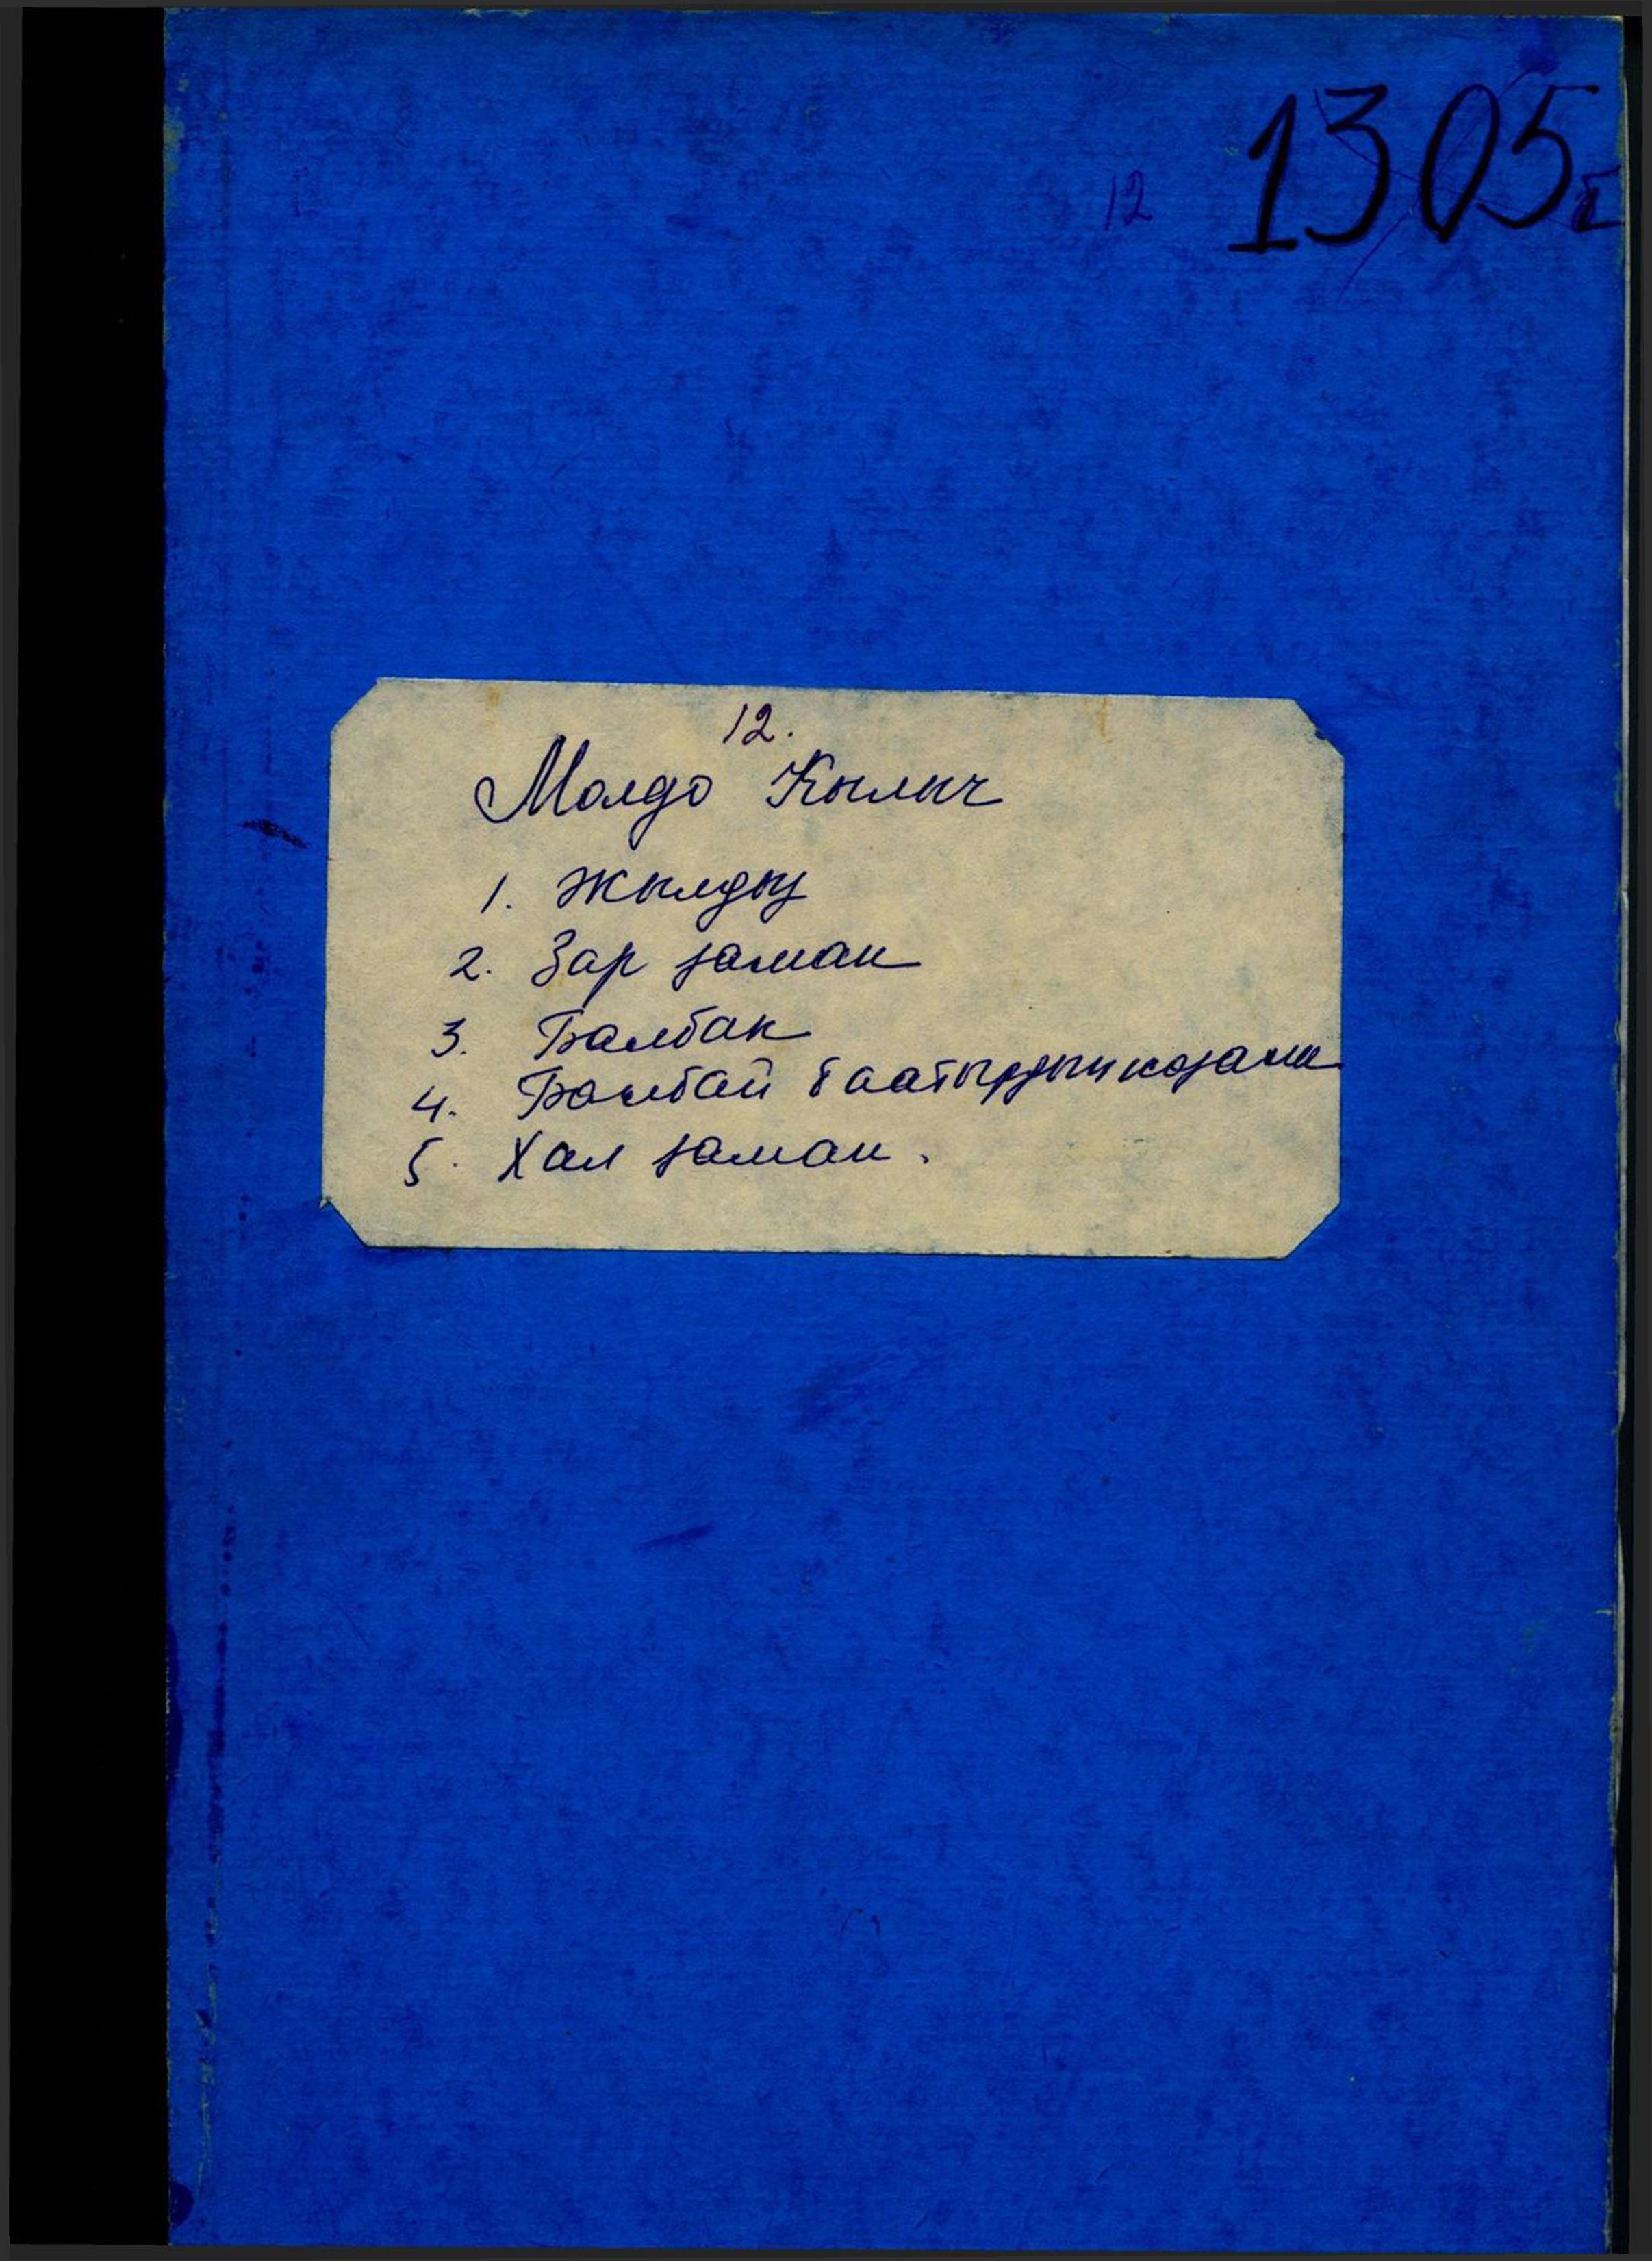 12 1305
12.
Молдо Кылыч
1. Жылдыз
2. Зар заман
3. Балбак
4. Балбай баатырдын кошагы
5. Хал заман.